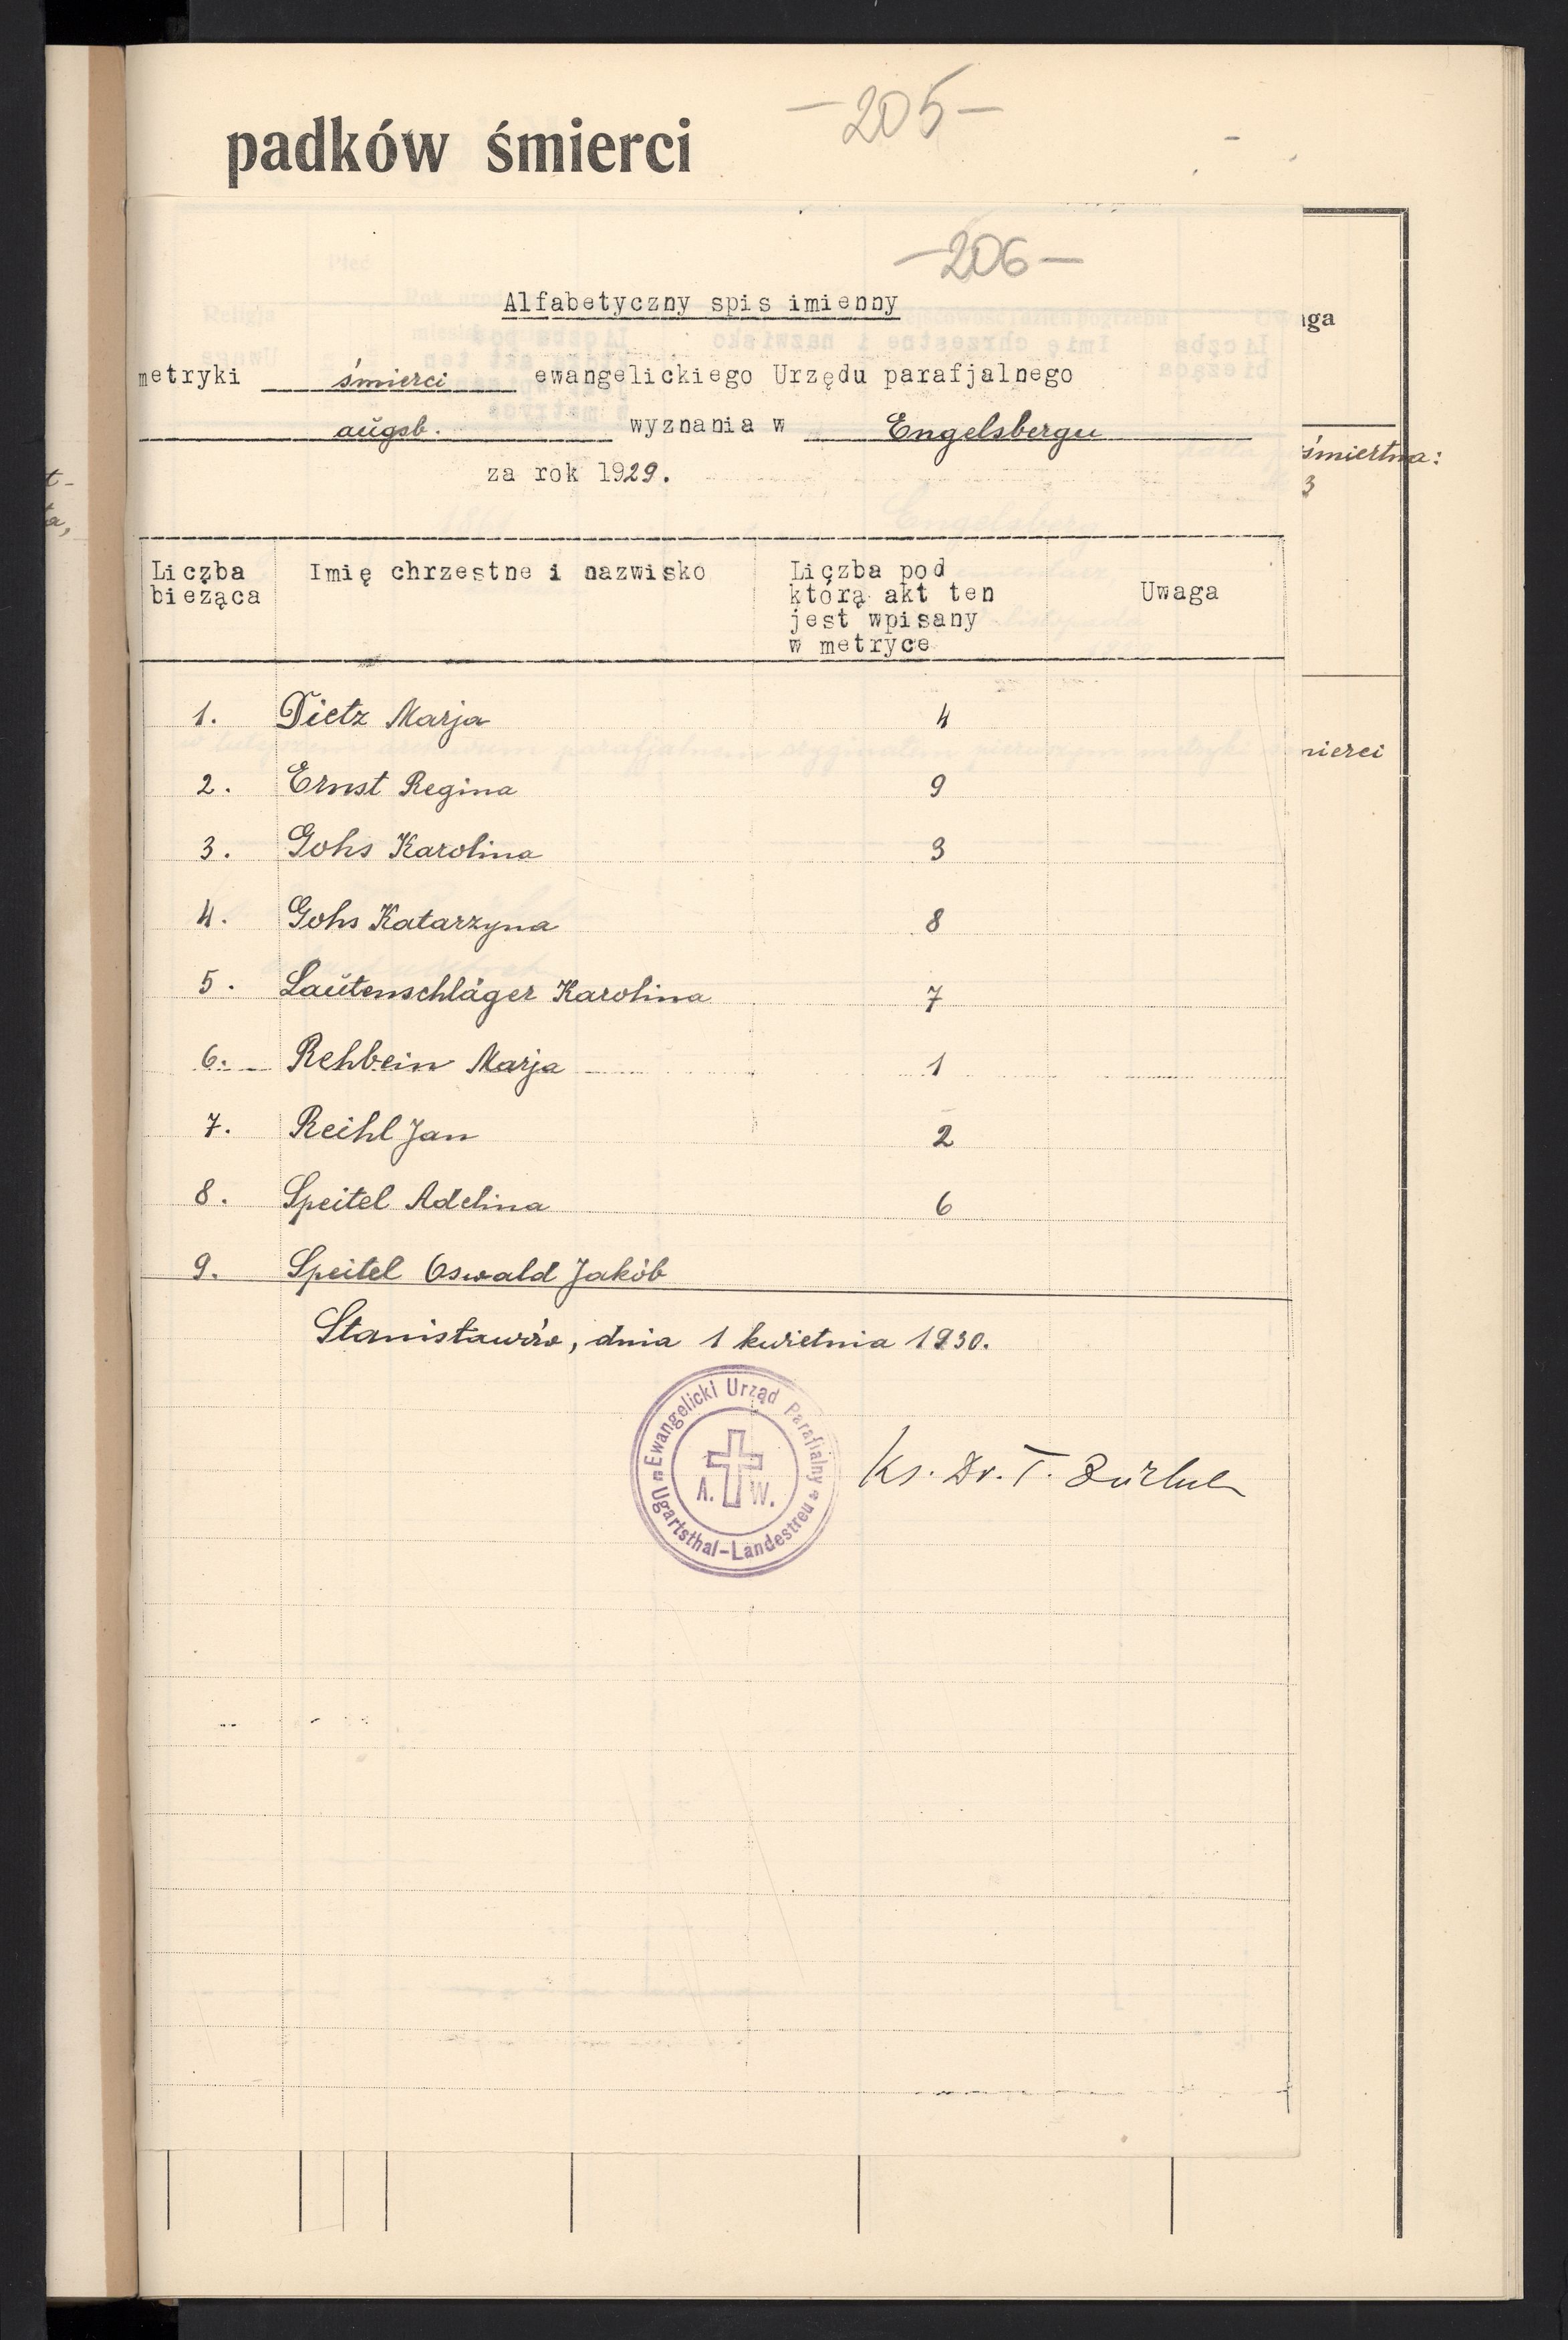 -205-
padków śmierci
-206-
Alfabetyczny spis imienny
metryki śmierci ewangelickiego Urzędu parafjalnego
augsb. wyznania w Engelsbergu
za rok 1929.
Liczba bieżąca Imię chrzestne i nazwisko Liczba pod którą akt ten jest wpisany w metryce Uwaga
1. Dietz Marja 4
2. Ernst Regina 9
3. Gohs Karolina 3
4. Gohs Katarzyna 8
5. Lautenschläger Karolina 7
6. Rehbein Marja 1
7. Reihl Jan 2
8. Speitel Adelina 6
9. Speitel Oswald Jakób
Stanisławów, dnia 1 kwietnia 1930.
Ewangelicki Urząd Parafialny
A. W.
Ugartsthal-Landestreu
Ks. Dr. T.
śmiertna:
3